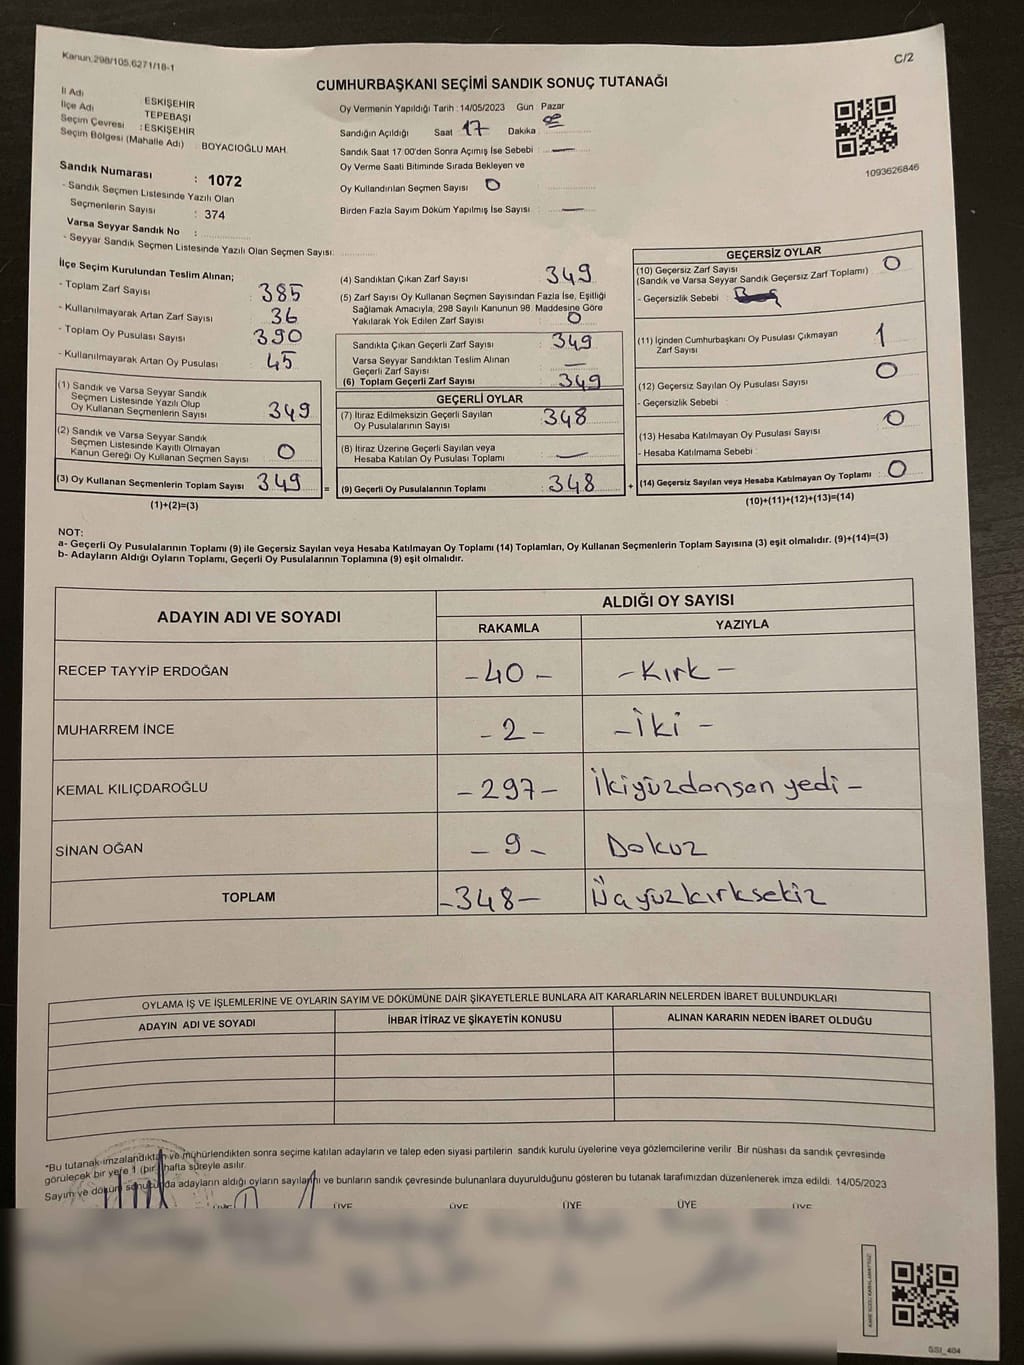 Kanun:298/105,6271/18-1
C/2
CUMHURBAŞKANI SEÇİMİ SANDIK SONUÇ TUTANAĞI
İl Adı ESKİŞEHİR
İlçe Adı TEPEBAŞI
Seçim Çevresi : ESKİŞEHİR
Seçim Bölgesi (Mahalle Adı) : BOYACIOĞLU MAH.
Sandık Numarası : 1072
- Sandık Seçmen Listesinde Yazılı Olan
Seçmenlerin Sayısı : 374
Varsa Seyyar Sandık No :
- Seyyar Sandık Seçmen Listesinde Yazılı Olan Seçmen Sayısı:
Oy Vermenin Yapıldığı Tarih : 14/05/2023 Gün Pazar
Sandığın Açıldığı Saat 17 Dakika
Sandık Saat 17:00'den Sonra Açımış İse Sebebi : —
Oy Verme Saati Bitiminde Sırada Bekleyen ve
Oy Kullandırılan Seçmen Sayısı 0
Birden Fazla Sayım Döküm Yapılmış İse Sayısı : —
1093626846
İlçe Seçim Kurulundan Teslim Alınan;
- Toplam Zarf Sayısı : 385
- Kullanılmayarak Artan Zarf Sayısı : 36
- Toplam Oy Pusulası Sayısı : 390
- Kullanılmayarak Artan Oy Pusulası : 45
(1) Sandık ve Varsa Seyyar Sandık
Seçmen Listesinde Yazılı Olup
Oy Kullanan Seçmenlerin Sayısı : 349
(2) Sandık ve Varsa Seyyar Sandık
Seçmen Listesinde Kayıtlı Olmayan
Kanun Gereği Oy Kullanan Seçmen Sayısı : 0
(3) Oy Kullanan Seçmenlerin Toplam Sayısı : 349 =
(1)+(2)=(3)
(4) Sandıktan Çıkan Zarf Sayısı : 349
(5) Zarf Sayısı Oy Kullanan Seçmen Sayısından Fazla İse, Eşitliği
Sağlamak Amacıyla, 298 Sayılı Kanunun 98. Maddesine Göre
Yakılarak Yok Edilen Zarf Sayısı : 0
Sandıkta Çıkan Geçerli Zarf Sayısı : 349
Varsa Seyyar Sandıktan Teslim Alınan
Geçerli Zarf Sayısı : —
(6) Toplam Geçerli Zarf Sayısı : 349
GEÇERLİ OYLAR
(7) İtiraz Edilmeksizin Geçerli Sayılan
Oy Pusulalarının Sayısı : 348
(8) İtiraz Üzerine Geçerli Sayılan veya
Hesaba Katılan Oy Pusulası Toplamı : —
(9) Geçerli Oy Pusulalarının Toplamı : 348 +
GEÇERSİZ OYLAR
(10) Geçersiz Zarf Sayısı : 0
(Sandık ve Varsa Seyyar Sandık Geçersiz Zarf Toplamı)
- Geçersizlik Sebebi :
(11) İçinden Cumhurbaşkanı Oy Pusulası Çıkmayan
Zarf Sayısı : 1
(12) Geçersiz Sayılan Oy Pusulası Sayısı : 0
- Geçersizlik Sebebi :
(13) Hesaba Katılmayan Oy Pusulası Sayısı : 0
- Hesaba Katılmama Sebebi :
(14) Geçersiz Sayılan veya Hesaba Katılmayan Oy Toplamı : 0
(10)+(11)+(12)+(13)=(14)
NOT:
a- Geçerli Oy Pusulalarının Toplamı (9) ile Geçersiz Sayılan veya Hesaba Katılmayan Oy Toplamı (14) Toplamları, Oy Kullanan Seçmenlerin Toplam Sayısına (3) eşit olmalıdır. (9)+(14)=(3)
b- Adayların Aldığı Oyların Toplamı, Geçerli Oy Pusulalarının Toplamına (9) eşit olmalıdır.
ADAYIN ADI VE SOYADI ALDIĞI OY SAYISI
RAKAMLA YAZIYLA
RECEP TAYYİP ERDOĞAN -40- -Kırk-
MUHARREM İNCE -2- -İki-
KEMAL KILIÇDAROĞLU -297- İkiyüzdonsan yedi-
SİNAN OĞAN -9- Dokuz
TOPLAM -348- Üayüzkırksekiz
OYLAMA İŞ VE İŞLEMLERİNE VE OYLARIN SAYIM VE DÖKÜMÜNE DAİR ŞİKAYETLERLE BUNLARA AİT KARARLARIN NELERDEN İBARET BULUNDUKLARI
ADAYIN ADI VE SOYADI İHBAR İTİRAZ VE ŞİKAYETİN KONUSU ALINAN KARARIN NEDEN İBARET OLDUĞU
*Bu tutanak imzalandıktan ve mühürlendikten sonra seçime katılan adayların ve talep eden siyasi partilerin sandık kurulu üyelerine veya gözlemcilerine verilir. Bir nüshası da sandık çevresinde
görülecek bir yere 1 (bir) hafta süreyle asılır.
Sayım ve döküm sonucunda adayların aldığı oyların sayılarını ve bunların sandık çevresinde bulunanlara duyurulduğunu gösteren bu tutanak tarafımızdan düzenlenerek imza edildi. 14/05/2023
ÜYE ÜYE ÜYE ÜYE ÜYE